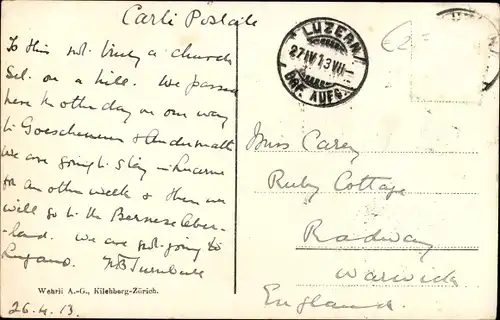 Carli Postale
Is this not truly a church
Set on a hill. We passed
here the other day on our way
to Goeschenen & Andermatt
We are going to stay in Lucerne
for another week & then we
will go to the Bernese Ober-
land. We are not going to
Lugano. Turnbull
Wehrli A.-G., Kilchberg-Zürich.
26.4.13.
LUZERN
27 IV 13 VII
BRF. AUFG.
Miss Carey
Ruby Cottage
Radway
Warwick
England.